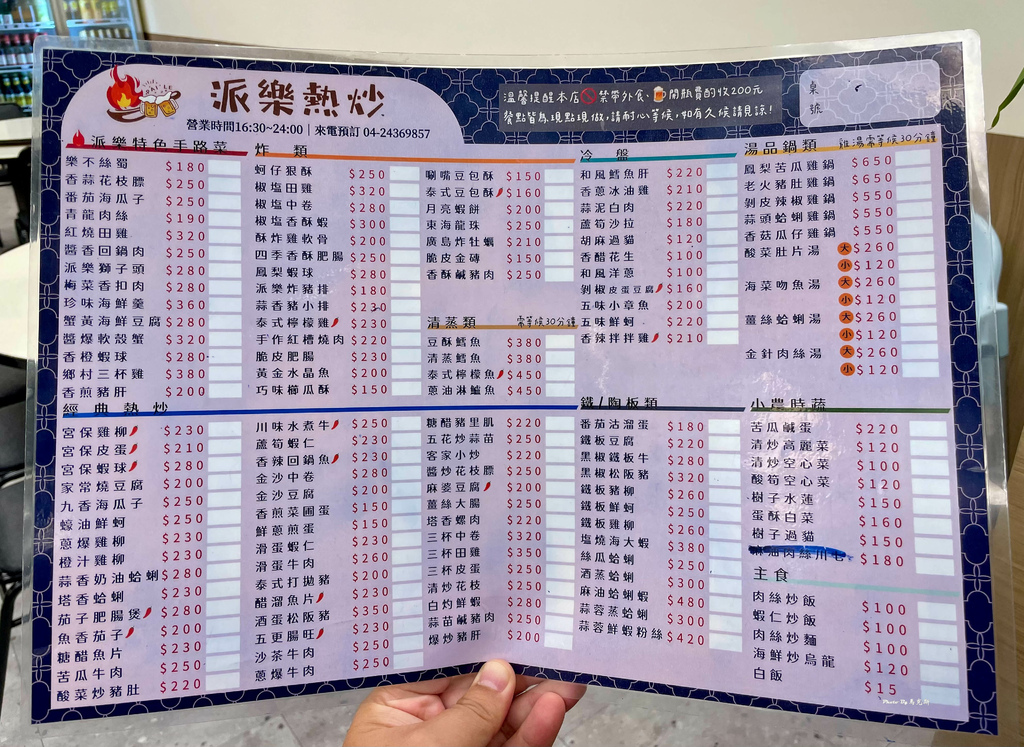 派樂熱炒
營業時間16:30~24:00 | 來電預訂 04-24369857
溫馨提醒本店🚫禁帶外食、🍺開瓶費酌收200元
餐點皆為現點現做,請耐心等候,如有久候請見諒!
桌
號
派樂特色手路菜
樂不絲蜀 $180
香蒜花枝膘 $250
番茄海瓜子 $250
青龍肉絲 $190
紅燒田雞 $320
醬香回鍋肉 $250
派樂獅子頭 $280
梅菜香扣肉 $280
珍味海鮮羹 $360
蟹黃海鮮豆腐 $280
醬爆軟殼蟹 $320
香橙蝦球 $280
鄉村三杯雞 $380
香煎豬肝 $200
炸 類
蚵仔狠酥 $250
椒塩田雞 $320
椒塩中卷 $280
椒塩香酥蝦 $300
酥炸雞軟骨 $200
四季香酥肥腸 $250
鳳梨蝦球 $280
派樂炸豬排 $180
蒜香豬小排 $230
泰式檸檬雞 $230
手作紅糟燒肉 $220
脆皮肥腸 $230
黃金水晶魚 $200
巧味櫛瓜酥 $150
唰嘴豆包酥 $150
泰式豆包酥 $160
月亮蝦餅 $200
東海龍珠 $250
廣島炸牡蠣 $210
脆皮金磚 $150
香酥鹹豬肉 $250
清蒸類 需等候30分鐘
豆酥鱈魚 $380
清蒸鱈魚 $380
泰式檸檬魚 $450
蔥油淋鱸魚 $450
冷 盤
和風鱈魚肝 $220
香蔥冰油雞 $210
蒜泥白肉 $220
蘆筍沙拉 $180
胡麻過貓 $120
香醋花生 $100
和風洋蔥 $100
剝椒皮蛋豆腐 $160
五味小章魚 $200
五味鮮蚵 $220
香辣拌拌雞 $210
湯品鍋類 雞湯需等候30分鐘
鳳梨苦瓜雞鍋 $650
老火豬肚雞鍋 $650
剝皮辣椒雞鍋 $550
蒜頭蛤蜊雞鍋 $550
香菇瓜仔雞鍋 $550
酸菜肚片湯 大 $260
小 $120
海菜吻魚湯 大 $260
小 $120
薑絲蛤蜊湯 大 $260
小 $120
金針肉絲湯 大 $260
小 $120
經典熱炒
宮保雞柳 $230
宮保皮蛋 $210
宮保蝦球 $280
家常燒豆腐 $200
九香海瓜子 $250
蠔油鮮蚵 $250
蔥爆雞柳 $230
橙汁雞柳 $230
蒜香奶油蛤蜊 $280
塔香蛤蜊 $230
茄子肥腸煲 $280
魚香茄子 $200
糖醋魚片 $230
苦瓜牛肉 $250
酸菜炒豬肚 $220
川味水煮牛 $250
蘆筍蝦仁 $230
香辣回鍋魚 $230
金沙中卷 $280
金沙豆腐 $200
香煎菜圃蛋 $150
鮮蔥煎蛋 $150
滑蛋蝦仁 $230
滑蛋牛肉 $260
泰式打拋豬 $200
醋溜魚片 $230
酒蛋松阪豬 $350
五更腸旺 $230
沙茶牛肉 $250
蔥爆牛肉 $250
糖醋豬里肌 $220
五花炒蒜苗 $250
客家小炒 $220
醬炒花枝膘 $250
麻婆豆腐 $200
薑絲大腸 $250
塔香螺肉 $220
三杯中卷 $320
三杯田雞 $350
三杯皮蛋 $220
清炒花枝 $250
白灼鮮蝦 $280
蒜苗鹹豬肉 $250
爆炒豬肝 $200
鐵/陶板類
番茄沽溜蛋 $180
鐵板豆腐 $220
黑椒鐵板牛 $280
黑椒松阪豬 $320
鐵板豬柳 $260
鐵板鮮蚵 $250
鐵板雞柳 $260
塩燒海大蝦 $380
絲瓜蛤蜊 $250
酒蒸蛤蜊 $300
麻油蛤蜊蝦 $480
蒜蓉蒸蛤蜊 $300
蒜蓉鮮蝦粉絲 $420
小農時蔬
苦瓜鹹蛋 $220
清炒高麗菜 $120
清炒空心菜 $100
酸筍空心菜 $120
樹子水蓮 $150
蛋酥白菜 $160
樹子過貓 $150
麻油肉絲川七 $180
主食
肉絲炒飯 $100
蝦仁炒飯 $100
肉絲炒麵 $100
海鮮炒烏龍 $120
白飯 $15
Photo By 馬克斯